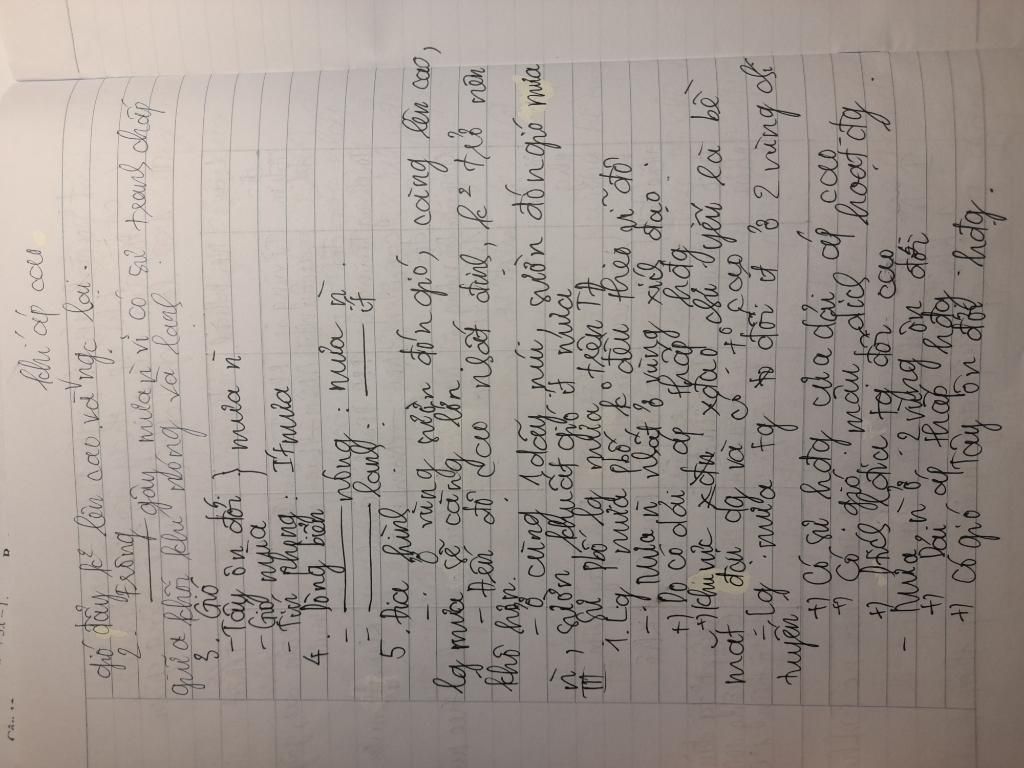 khí áp cao
gió đẩy k² lên cao và ngc lại.
2. Frông
——— gây mưa n̄ vì có sự tranh chấp
giữa khối khí nóng và lạnh
3. Gió
- Tây ôn đới } mưa n̄
- Gió mùa
- Tín phong : Ít mưa
4. Dòng biển
- ——— nóng : mưa n̄.
- ——— lạnh : ——— ít
5. Địa hình
- : ở vùng sườn đón gió, càng lên cao,
lg mưa sẽ càng lớn.
- Đến độ cao nhất định, k² trở nên
khô hơn.
- Ở cùng 1 dãy núi sườn đón gió mưa
n̄, sườn khuất gió ít mưa
III, Sự pbố lg mưa trên TĐ
1. Lg mưa pbố k° đều theo vĩ độ
- Mưa n̄ nhất ở vùng xích đạo.
+) Do có dải áp thấp hđg
+) Khu xđạo chủ yếu là bề
mặt đại dg và có t° cao
- Lg mưa tg đối ít ở 2 vùng chí
tuyến
+) Có sự hđg của dải áp cao
+) Có gió mậu dịch hoạt đg
+) tỉ lệ lục địa tg đối cao
- Mưa n̄ ở 2 vùng ôn đới
+) Dải áp thấp hđg
+) Có gió Tây ôn đới hđg.